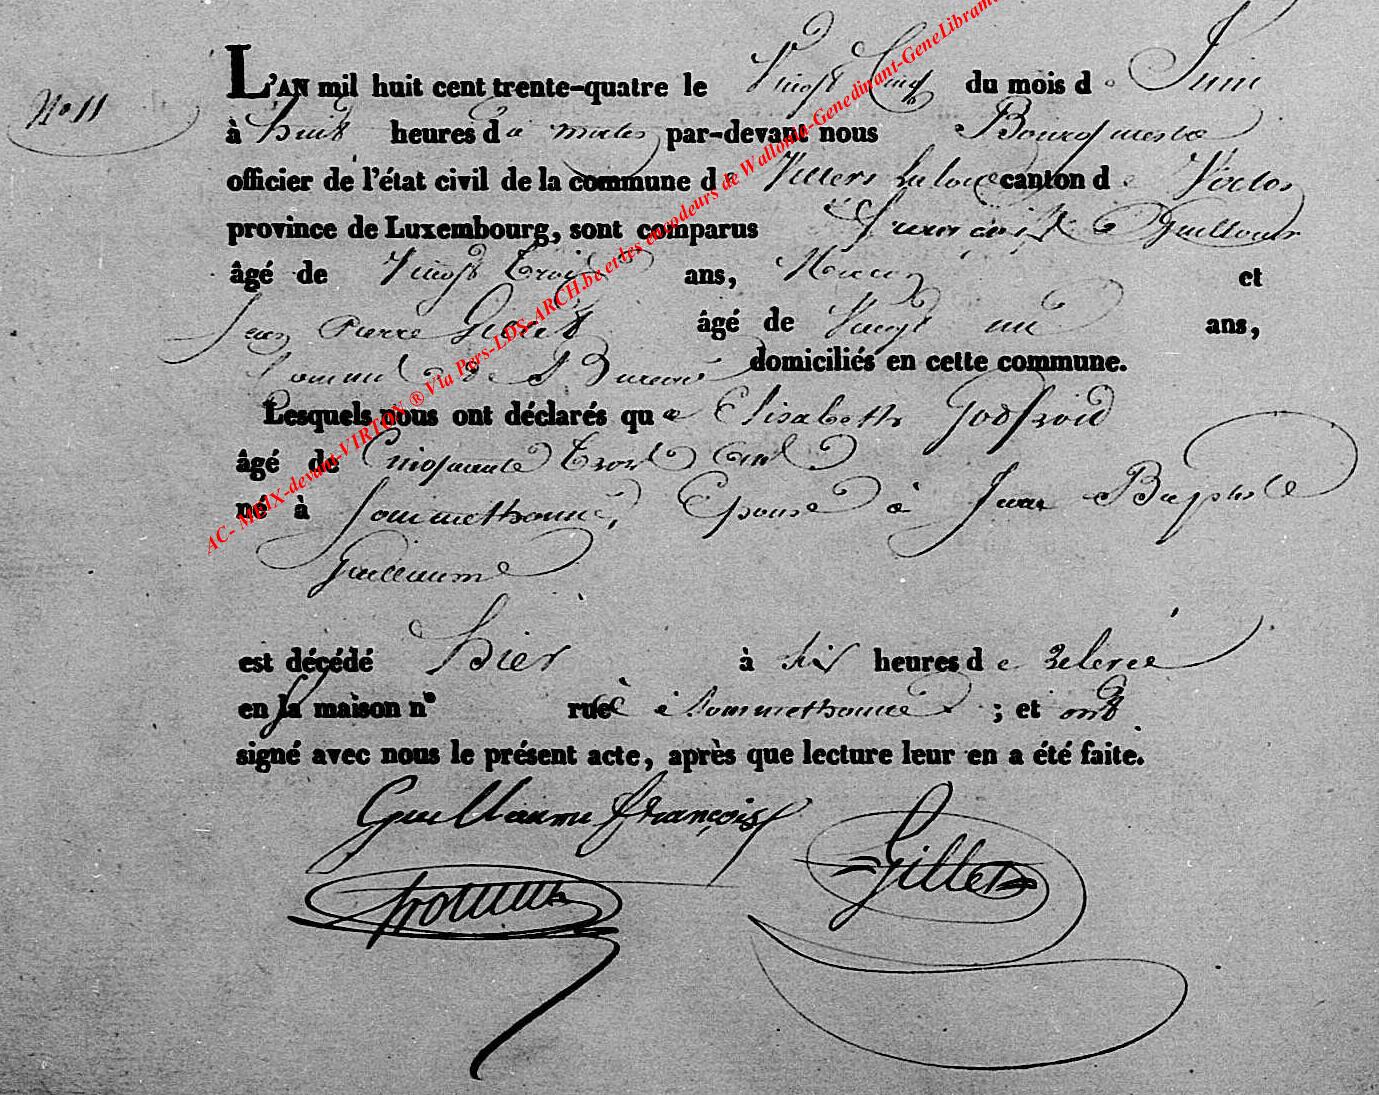 N° 11
L'AN mil huit cent trente-quatre le Vingt Cinq du mois de Juin
à huit heures du matin par-devant nous Bourgmestre
officier de l'état civil de la commune de Villers la loue canton de
province de Luxembourg, sont comparus François Guillaume
âgé de Vingt trois ans, et
Jean Pierre Gillet âgé de Vingt un ans,
Commis de Bureau domiciliés en cette commune.
Lesquels nous ont déclarés que Elisabeth Godfroid
âgé de Cinquante trois ans
né à Sommethonne, Epouse à Jean Baptiste
Guillaume
est décédé hier à six heures de relevé
en sa maison n° rue à Sommethonne ; et ont
signé avec nous le présent acte, après que lecture leur en a été faite.
Guillaume François
Gillet
AC- MEIX-devant-VIRTON ® Via Pers-LDS-ARCH.be et les encodeurs de Wallonia-Genedinant-GeneLibramo